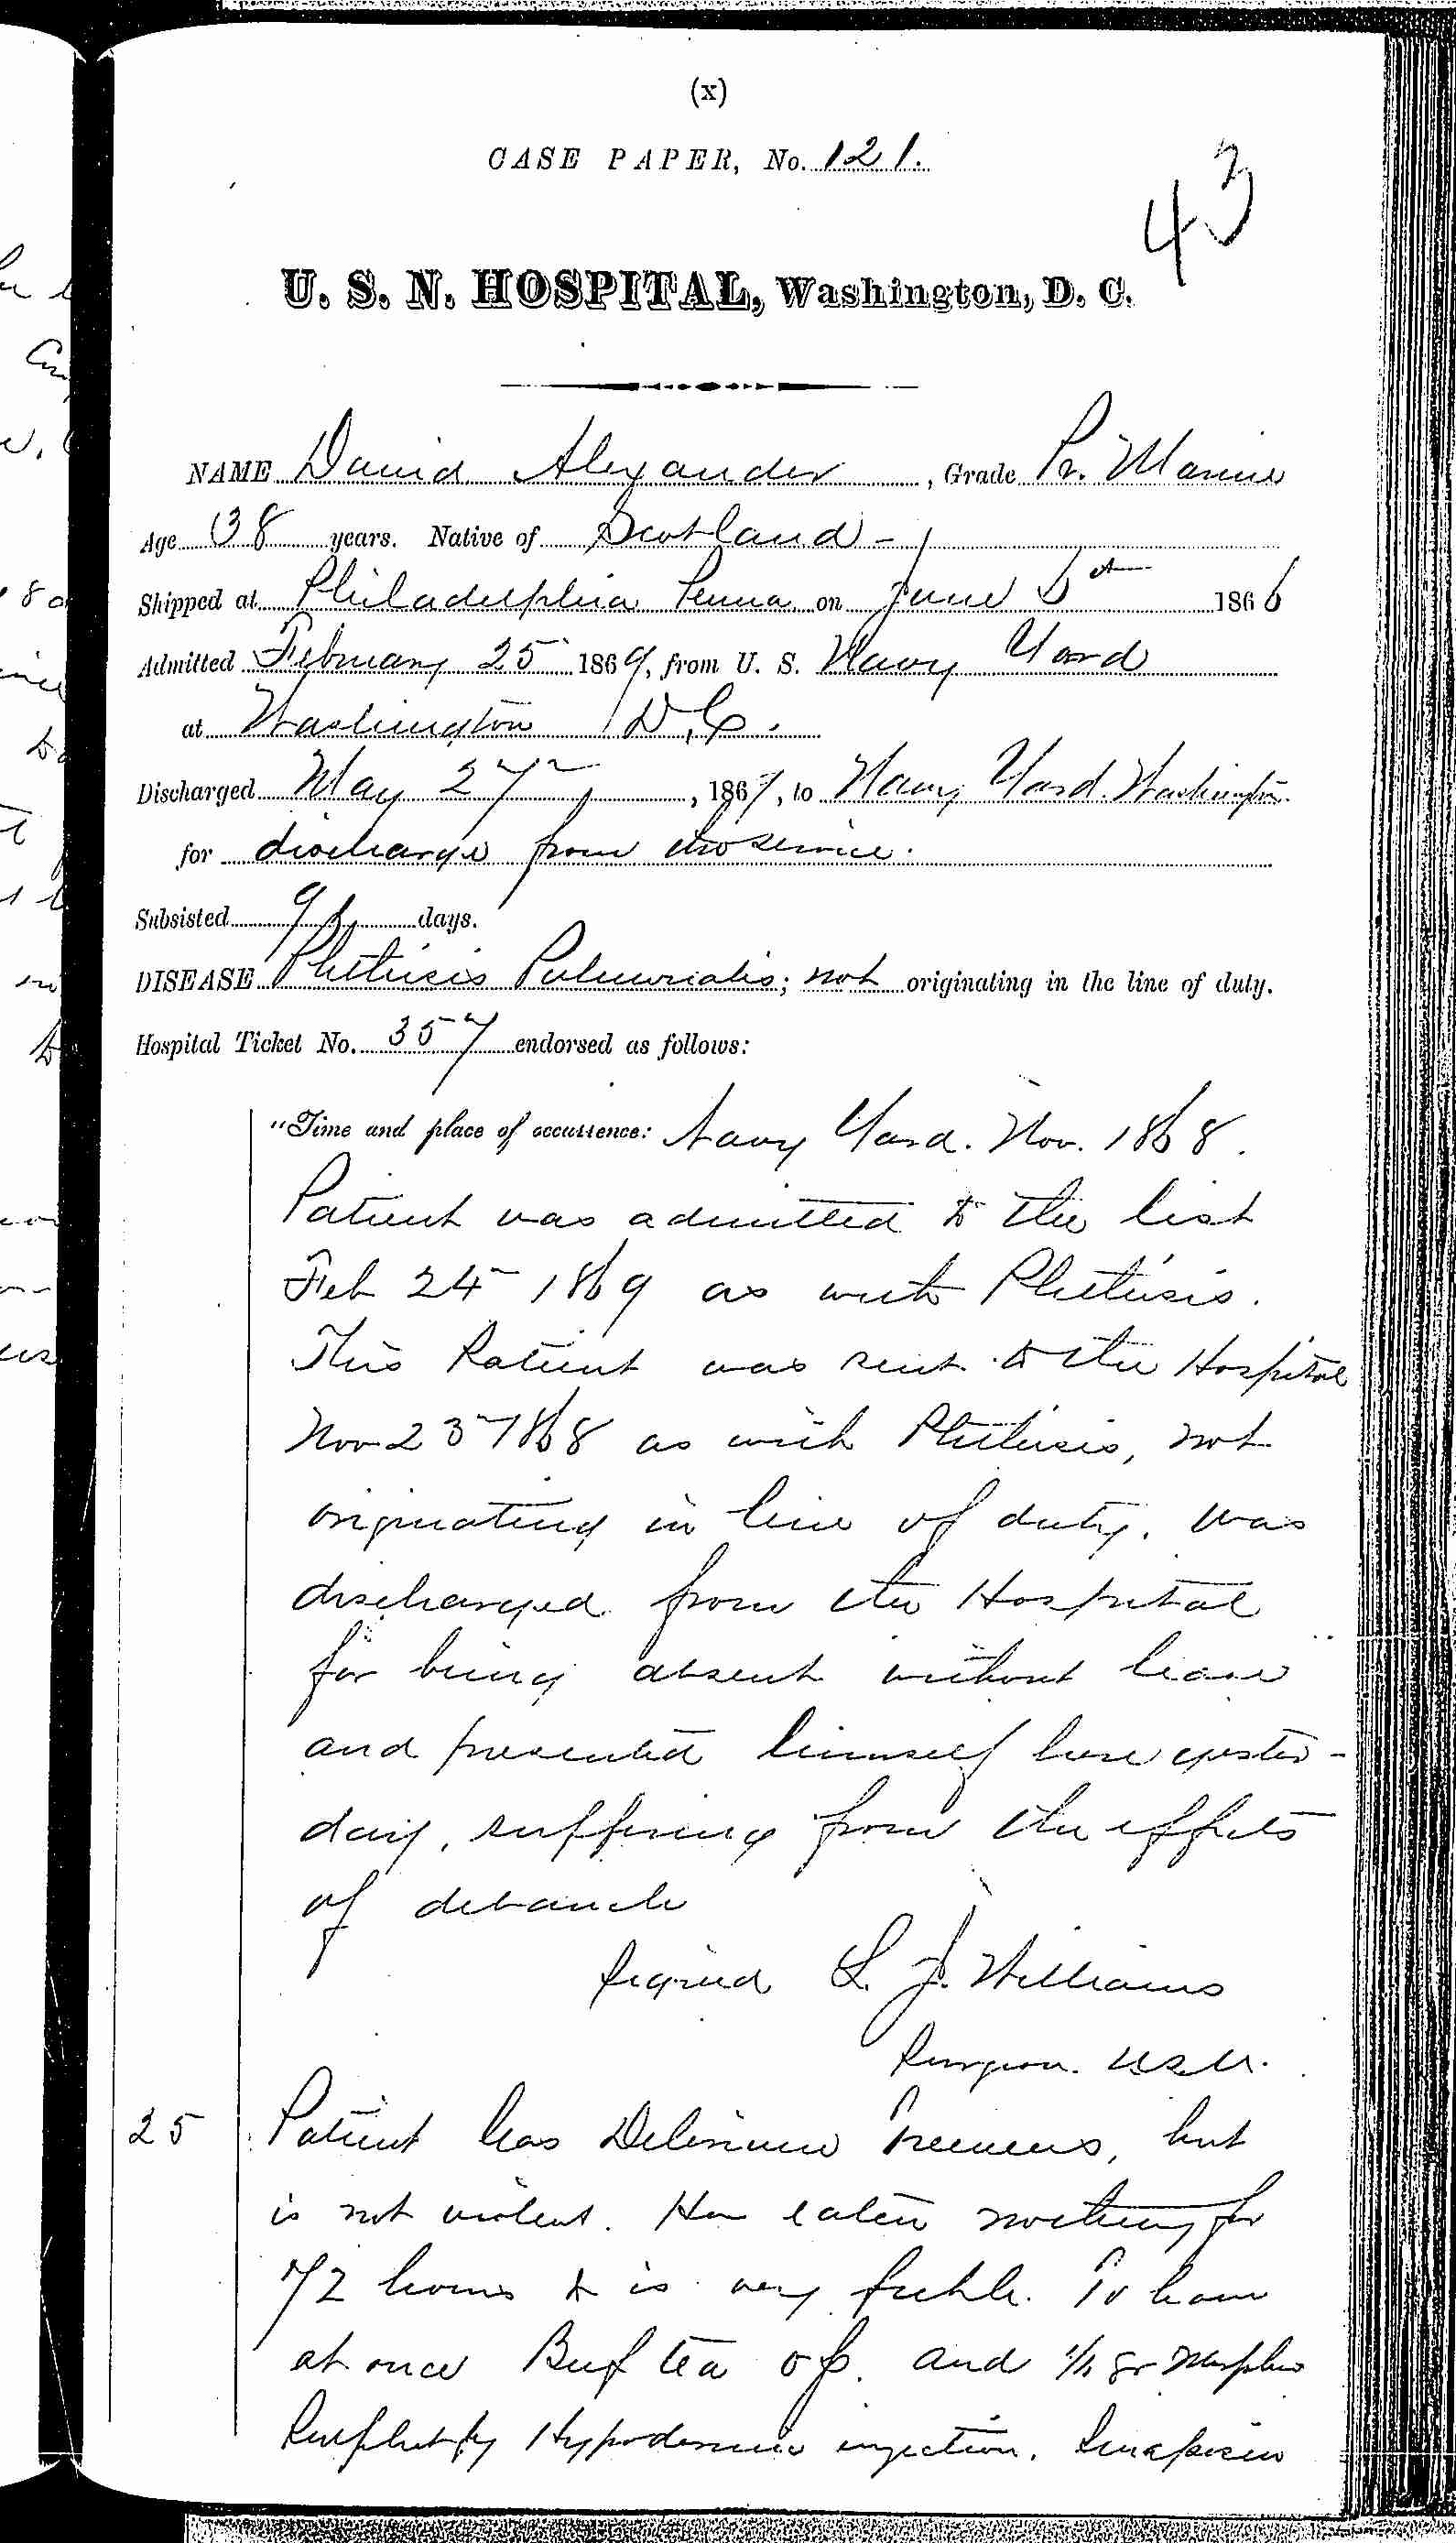 (x)
CASE PAPER, No. 121.
43
U. S. N. HOSPITAL, Washington, D. C.
NAME David Alexander, Grade Pr. Marine
Age 38 years. Native of Scotland -
Shipped at Philadelphia Penna on June 6th 1866
Admitted February 25 1869, from U. S. Navy Yard
at Washington D.C.
Discharged May 27, 1869, to Navy Yard. Washington.
for discharge from the service.
Subsisted days.
DISEASE Phthisis Pulmonalis; not originating in the line of duty.
Hospital Ticket No. 357 endorsed as follows:
"Time and place of occurrence: Navy Yard. Nov. 1868.
Patient was admitted to the list
Feb 24 1869 as with Phthisis.
This Patient was sent to the Hospital
Nov 23 1868 as with Phthisis, not
originating in line of duty. Was
discharged from the Hospital
for being absent without leave
and presented himself here yester-
day, suffering from the effects
of debauch
Signed L. J. Williams
Surgeon. U.S.N.
25 Patient has Delirium Tremens, but
is not violent. Has eaten nothing for
72 hours & is very feeble. To have
at once Beef tea and gr Morphia
Sulphat by Hypodermic injection. Sinapism